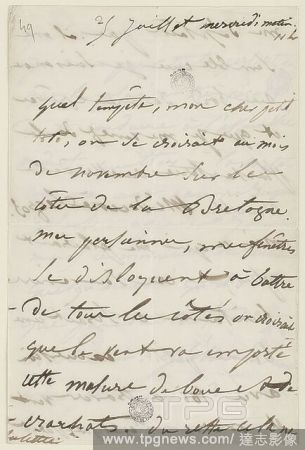 49
25 juillet mercredi matin
11 h
quel tempête, mon cher petit
on se croirait au mois
de novembre sur les
côtes de la Bretagne.
mes persiennes, mes fenêtres
se disloquent à battre
de tous les côtés on croirait
que le vent va emporter
cette masure de boue et de
crachats. du reste cela ne
TPG
www.tpgnews.com/達志影像